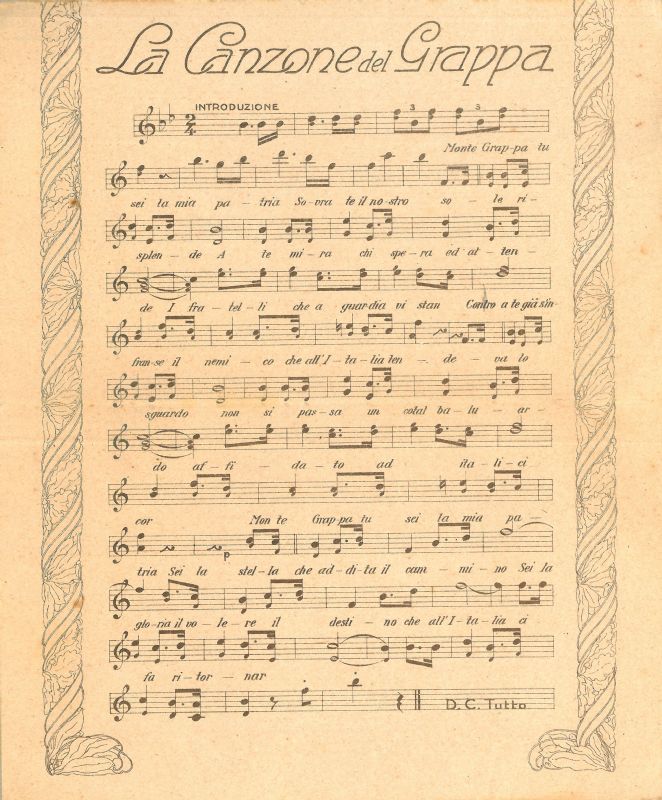 La Canzone del Grappa
INTRODUZIONE
2/4
3 3
Monte Grap-pa tu
sei la mia pa-tria So-vra te il no-stro so-le ri-
splen-de A te mi-ra chi spe-ra ed at-ten-
de I fra-tel-li che a guar-dia vi stan Contro a te già s'in-
fran-se il nemi-co che all'I-ta-lia ten-de-va lo
sguardo non si pas-sa un cotal ba-lu-ar-
do af-fi-da-to ad ita-li-ci
cor Mon te Grap-pa tu sei la mia pa-
p
tria Sei la stel-la che ad-di-ta il cam-mi-no Sei la
glo-ria il vo-le-re il desti-no che all'I-ta-lia ci
fa ri-tor-nar
D. C. Tutto